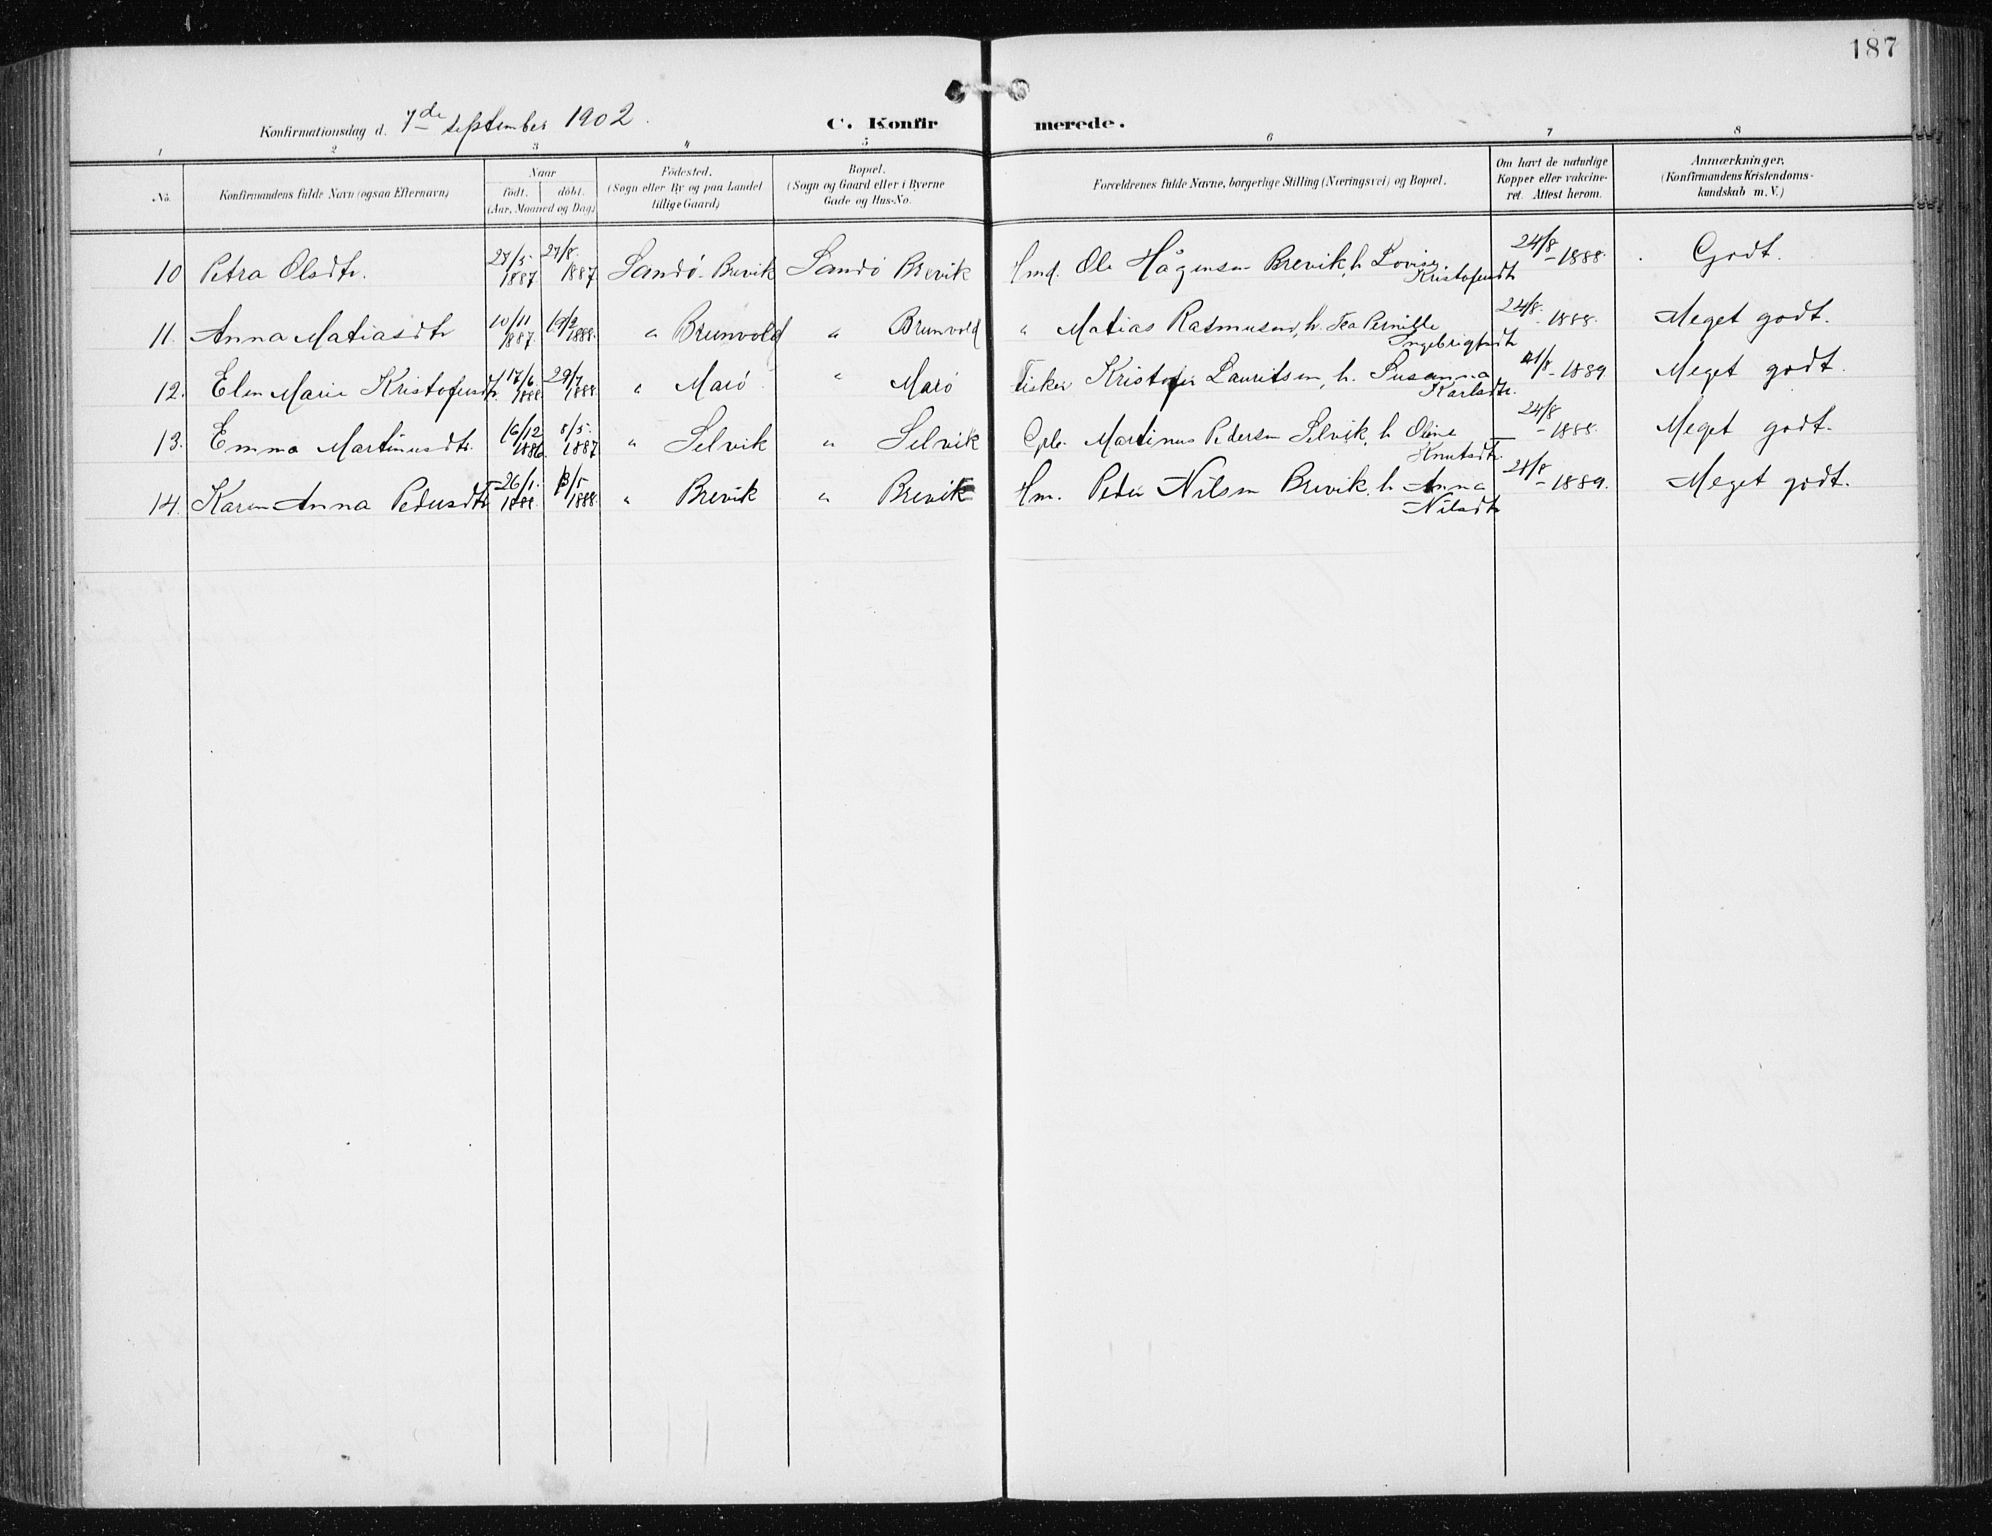 187
Konfirmationsdag d. 7de september 1902.
C. Konfirmerede.
1 2 3 4 5 6 7 8
No. Konfirmandens fulde Navn (ogsaa Efternavn) Naar født. døbt. (Aar, Maaned og Dag) Födested. (Sogn eller By og paa Landet tillige Gaard) Bopæl. (Sogn og Gaard eller i Byerne Gade og Hus-No. Forældrenes fulde Navne, borgerlige Stilling (Næringsvei) og Bopæl. Om havt de naturlige Kopper eller vakcineret. Attest herom. Anmærkninger. (Konfirmandens Kristendomskundskab m. V.)
10 Petra Olsdtr. 27/5. 1887 27/8. 1887 Sandö Brevik Sandö Brevik Hmd. Ole Hågensen Brevik, h. Lovise Kristofersdtr 24/8 - 1888. Godt.
11. Anna Matiasdtr 10/11 1887. 19/2 1888. " Brunvold " Brunvold " Matias Rasmussen, h. Tea Pernille Ingebrigtsdtr 24/8. - 1888. Meget godt.
12. Elen Marie Kristofersdtr. 17/6. 1888 29/7 1888. " Marö " Marö Fisker Kristofer Lauritsen, h. Susanna Karlsdtr. 21/8 - 1889 Meget godt.
13. Emma Martinusdtr. 16/12 1886. 8/5. 1887 " Selvik " Selvik Gbr. Martinus Pedersen Selvik, h. Oline Knutsdtr. 24/8 - 1888. Meget godt.
14. Karen Anna Pedersdtr 26/1. 1888. 13/5 1888. " Brevik " Brevik Hm. Peder Nilsen Brevik, h. Anna Nilsdtr 21/8 - 1889. Meget godt.